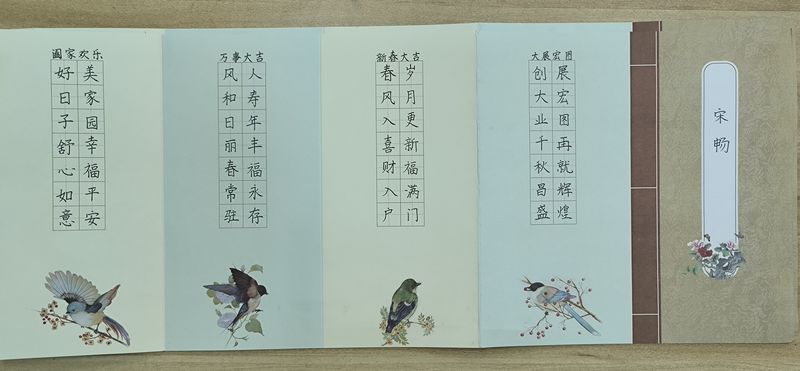 阖家欢乐
好日子舒心如意
美家园幸福平安
万事大吉
风和日丽春常驻
人寿年丰福永存
新春大吉
春风入喜财入户
岁月更新福满门
大展宏图
创大业千秋昌盛
展宏图再就辉煌
宋畅